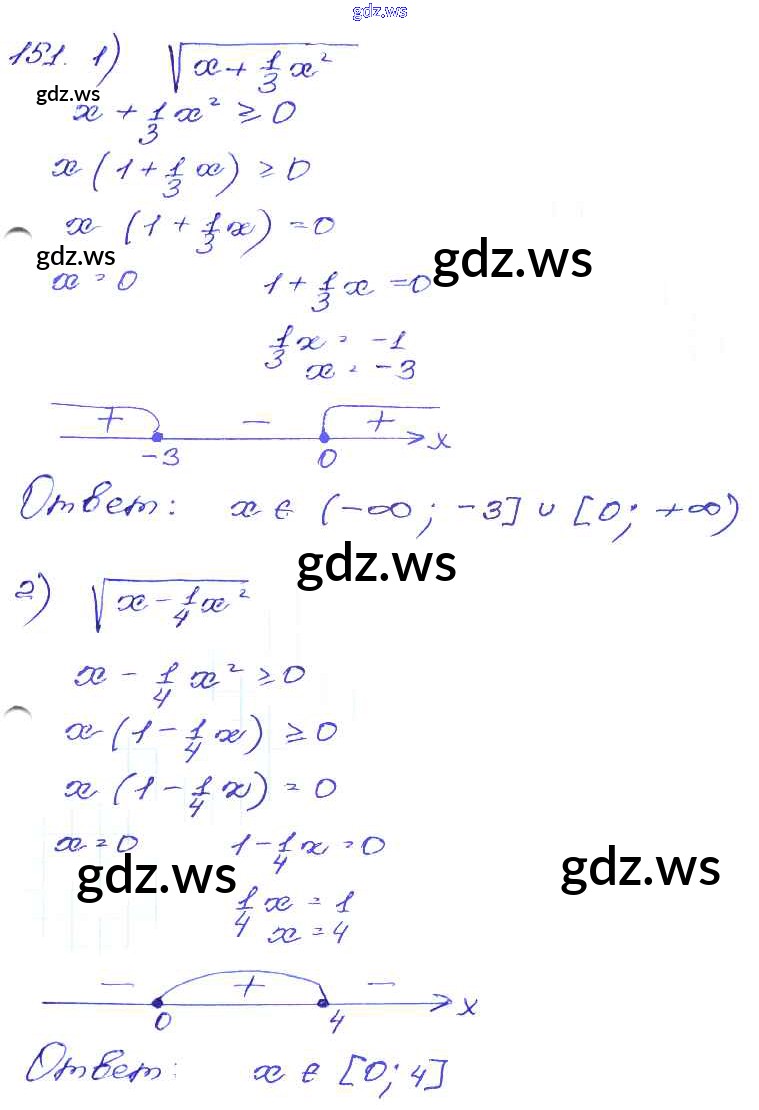 gdz.ws
151. 1) √(x + 1/3 x²)
gdz.ws
x + 1/3 x² ≥ 0
x (1 + 1/3 x) ≥ 0
x (1 + 1/3 x) = 0
gdz.ws gdz.ws
x = 0 1 + 1/3 x = 0
1/3 x = -1
x = -3
+ − +
-3 0 x
Ответ: x ∈ (-∞; -3] ∪ [0; +∞)
gdz.ws
2) √(x - 1/4 x²)
x - 1/4 x² ≥ 0
x (1 - 1/4 x) ≥ 0
x (1 - 1/4 x) = 0
x = 0 1 - 1/4 x = 0
gdz.ws gdz.ws
1/4 x = 1
x = 4
− + −
0 4 x
Ответ: x ∈ [0; 4]